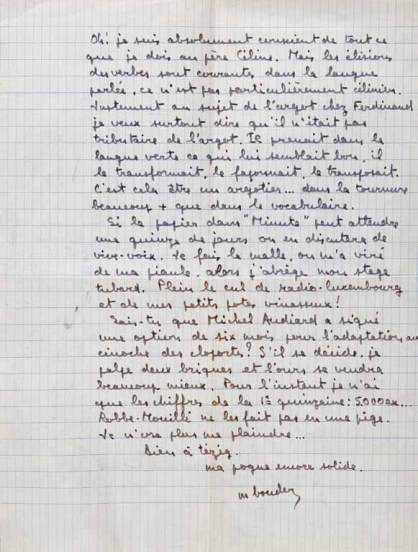 Oh! je suis absolument conscient de tout ce
que je dois au père Céline. Mais les élisions
des verbes sont courantes dans la langue
parlée, ce n'est pas particulièrement célinien.
Justement au sujet de l'argot chez Ferdinand
je veux surtout dire qu'il n'était pas
tributaire de l'argot. Il prenait dans la
langue verte ce qui lui semblait bon. il
le transformait, le façonnait, le transposait.
C'est cela être un argotier... dans la tournure
beaucoup + que dans le vocabulaire.
Si le papier dans "Minute" peut attendre
une quinze de jours on en discutera de
vive-voix. Je fais la malle, on m'a viré
de ma piaule. alors j'abrège mon stage
tubard. Plein le cul de radio-luxembourg
et de mes petits potes vinasseux!
Sais-tu que Michel Audiard a signé
une option de six mois pour l'adaptation au
cinoche des cloports? S'il se décide, je
palpe deux briques et l'ours se vendra
beaucoup mieux. Pour l'instant je n'ai
que les chiffres de la 1e quinzaine: 5.000 ex...
Robbe-Mouillé ne les fait pas en une pige.
Je n'ose plus me plaindre...
Bien à tézig.
ma pogne encore solide.